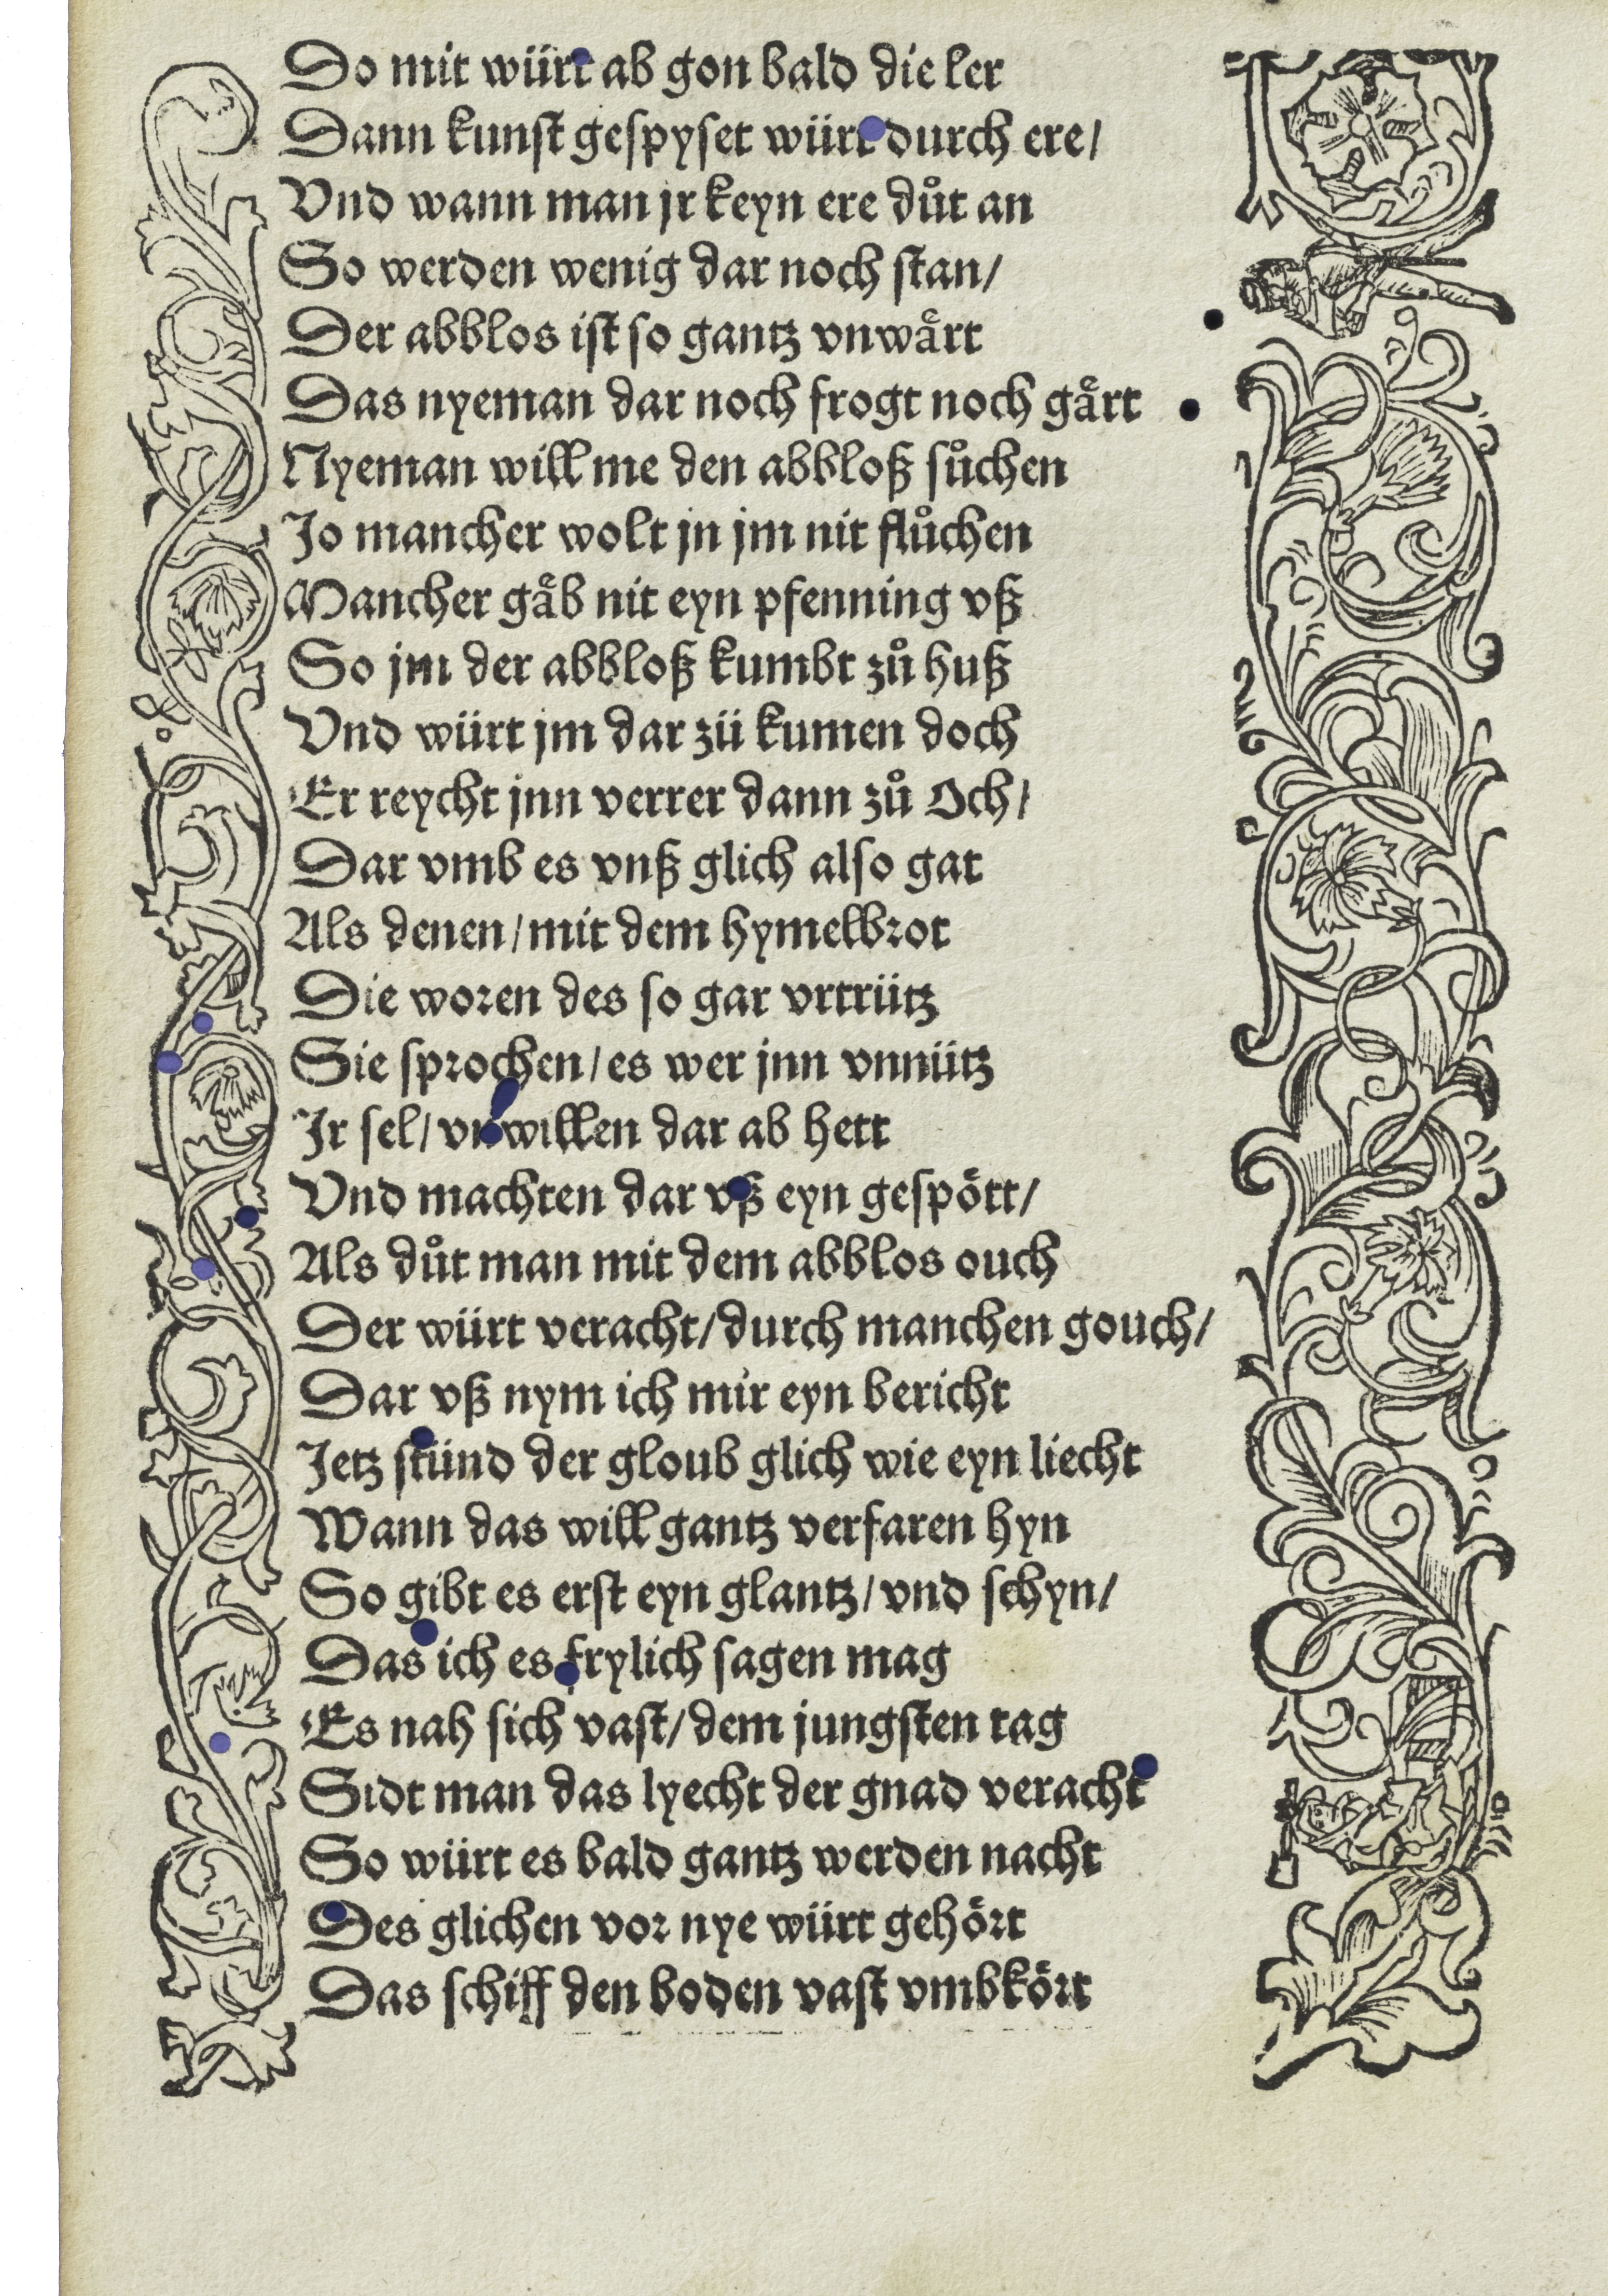 Do mit würt ab gon bald die ler
Dann kunst gespyset würt durch ere/
Vnd wann man jr keyn ere důt an
So werden wenig dar noch stan/
Der abblos ist so gantz vnwaͤrt
Das nyeman dar noch frogt noch gaͤrt
Nyeman will me den abbloß sůchen
Jo mancher wolt jn jm nit flůchen
Mancher gaͤb nit eyn pfenning vß
So jm der abbloß kumbt zů huß
Vnd würt jm dar zü kumen doch
Er reycht jnn verrer dann zů Och/
Dar vmb es vnß glich also gat
Als denen/mit dem hymelbrot
Die woren des so gar vrtrütz
Sie sprochen/es wer jnn vnnütz
Jr sel/vnwillen dar ab hett
Vnd machten dar vß eyn gespoͤtt/
Als důt man mit dem abblos ouch
Der würt veracht/durch manchen gouch/
Dar vß nym ich mir eyn bericht
Jetz stünd der gloub glich wie eyn liecht
Wann das will gantz verfaren hyn
So gibt es erst eyn glantz/vnd schyn/
Das ich es frylich sagen mag
Es nah sich vast/dem jungsten tag
Sidt man das lyecht der gnad veracht
So würt es bald gantz werden nacht
Des glichen vor nye würt gehoͤrt
Das schiff den boden vast vmbkoͤrt